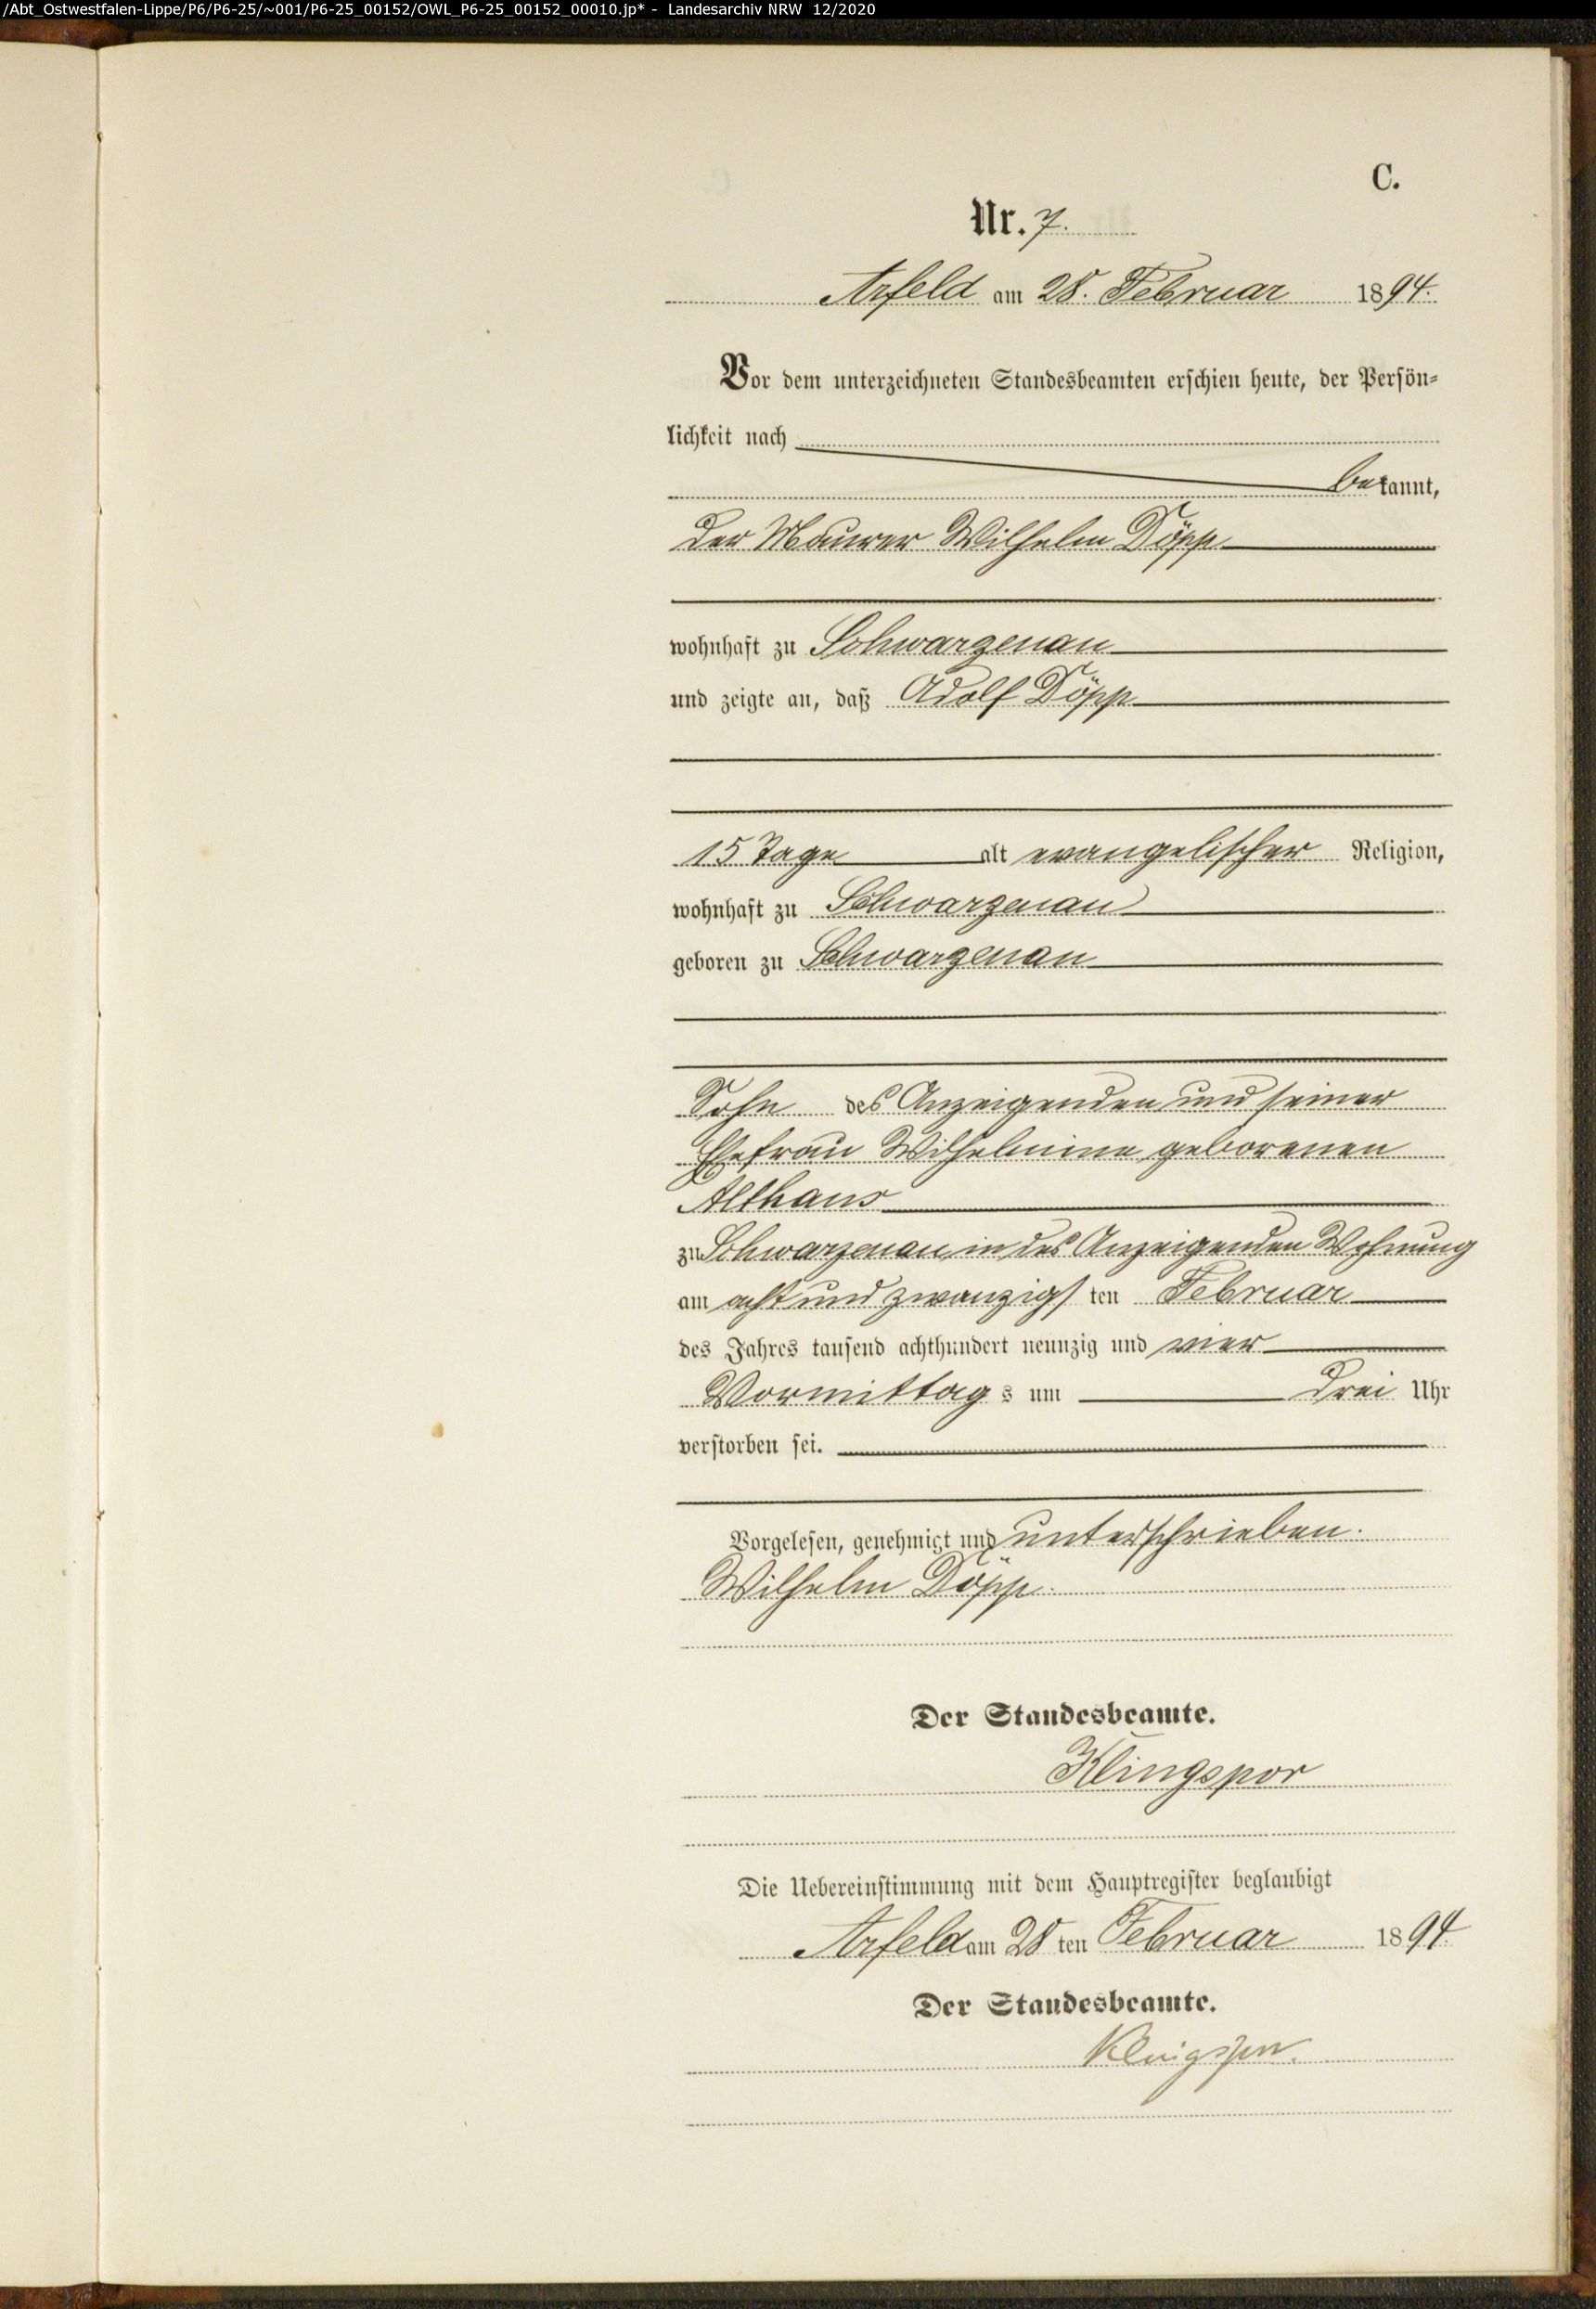 /Abt_Ostwestfalen-Lippe/P6/P6-25/~001/P6-25_00152/OWL_P6-25_00152_00010.jp* - Landesarchiv NRW 12/2020
C.
Nr. 7.
Arfeld am 28. Februar 1894.
Vor dem unterzeichneten Standesbeamten erschien heute, der Persön-
lichkeit nach
bekannt,
der Maurer Wilhelm Döpp
wohnhaft zu Schwarzenau
und zeigte an, daß Adolf Döpp
15 Tage alt evangelischer Religion,
wohnhaft zu Schwarzenau
geboren zu Schwarzenau
Sohn des Anzeigenden und seiner
Ehefrau Wilhelmine geborenen
Althaus
zu Schwarzenau in des Anzeigenden Wohnung
am acht und zwanzigsten Februar
des Jahres tausend achthundert neunzig und vier
Vormittags um drei Uhr
verstorben sei.
Vorgelesen, genehmigt und unterschrieben.
Wilhelm Döpp.
Der Standesbeamte.
Klingspor
Die Uebereinstimmung mit dem Hauptregister beglaubigt
Arfeld am 28ten Februar 1894.
Der Standesbeamte.
Klingspor.